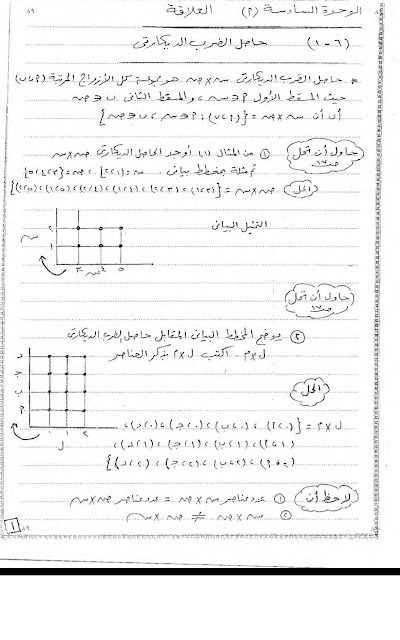 الوحدة السادسة (٢) العلاقة
(٦-١) حاصل الضرب الديكارتى
* حاصل الضرب الديكارتى س×ص هو مجموعة كل الأزواج المرتبة (٢،ب)
حيث المسقط الأول ٢∈س، والمسقط الثانى ب∈ص
أى أن س×ص = {(٢،ب) : ٢∈س، ب∈ص}
حاول أن تحل
① من المثال (١) أوجد الحاصل الديكارتى ص×س
ثم مثله بمخطط بيانى س={١،٢} ص={٣،٤،٥}
الحل
ص×س = {(٣،١)،(٣،٢)،(٤،١)،(٤،٢)،(٥،١)،(٥،٢)}
التمثيل البيانى
س
٢
١
٣ ٤ ٥
حاول أن تحل
② يوضح المخطط البيانى المقابل حاصل الضرب الديكارتى
ل×٢ . اكتب ل×٢ بذكر العناصر
د
ج
ب
٢
٠ ١ ٢
ل
الحل
ل×٢ = {(٠،٢)،(٠،ب)،(٠،ج)،(٠،د)،
(١،٢)،(١،ب)،(١،ج)،(١،د)،
(٢،٢)،(٢،ب)،(٢،ج)،(٢،د)}
لاحظ أن
① عدد عناصر س×ص = عدد عناصر ص×س
② س×ص ≠ ص×س
١